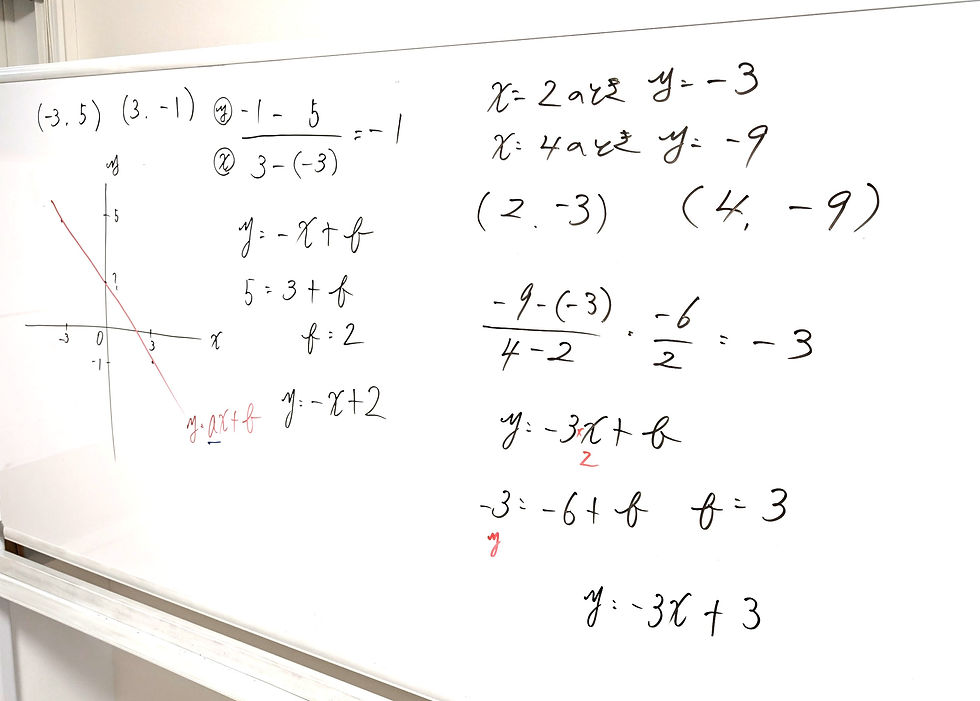 (-3, 5) (3, -1)
ⓨ -1 - 5
ⓧ 3 - (-3)
= -1
y
5
?
-3 0 3 x
-1
y = ax + b
y = -x + b
5 = 3 + b
b = 2
y = -x + 2
x = 2のとき y = -3
x = 4のとき y = -9
(2, -3) (4, -9)
-9 - (-3)
4 - 2
= -6
2
= -3
y = -3×x + b
2
-3 = -6 + b b = 3
y
y = -3x + 3